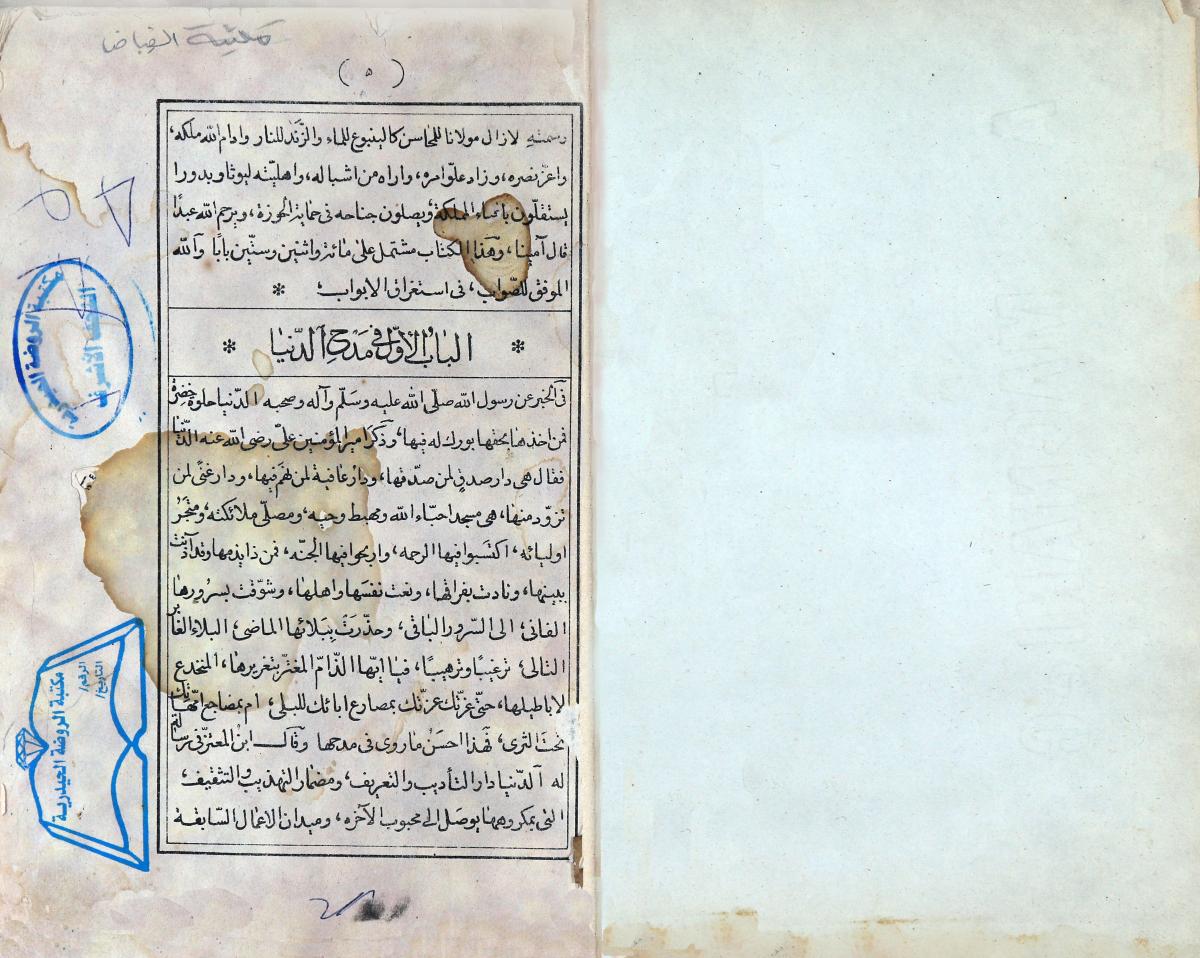 مكتبة الفياضا
(٥)
وسمته لازال مولانا للمحاسن كالينبوع للماء والزند للنار وادام الله ملكه،
واعز نصره، وزاد علو امره، واراه من اشباله، واهليته ليوثا وبدورا
يستقلون باعباء المملكة، ويصلون جناحه في حماية الحوزة، ويرحم الله عبدًا
قال آمينا، وهذا الكتاب مشتمل على مائة واثنين وستين بابا والله
الموفق للصواب، في استغراق الابواب، *
* الباب الاول في مدح الدنيا *
في الخبر عن رسول الله صلى الله عليه وسلم وآله وصحبه الدنيا حلوة خضرة
فمن اخذها بحقها بورك له فيها، وذكر امير المؤمنين علي رضى الله عنه الدنيا
فقال هي دار صدق لمن صدقها، ودار عافية لمن فهم فيها، ودار غنى لمن
تزود منها، هي مسجد احباء الله ومهبط وحيه، ومصلى ملائكته، ومتجر
اوليائه، اكتسبوا فيها الرحمه، واربحوا فيها الجنه، فمن ذا يذمها وقد آذنت
ببينها، ونادت بفراقها، ونعت نفسها واهلها، وشوقت بسرورها
الفاني، الى السرور الباقي، وحذرت ببلائها الماضي، البلاء الغابر
التالى، ترغيبًا وترهيبًا، فيا ايها الذام المغتر بتغريرها، المنخدع
لاباطيلها، حتى غرتك غرتك بمصارع ابائك للبلى، ام بمضاجع امهاتك
تحت الثرى، فهذا احسن ما روى في مدحها وقال ابن المعتز في رسالة
له الدنيا دار التأديب والتعريف، ومضمار التهذيب والتثقيف،
التي بمكروهها يوصل الى محبوب الآخره، وميدان الاعمال السابقة
مكتبة الروضة الحيدرية
النجف الأشرف
مكتبة الروضة الحيدرية
الرقم/
التاريخ/